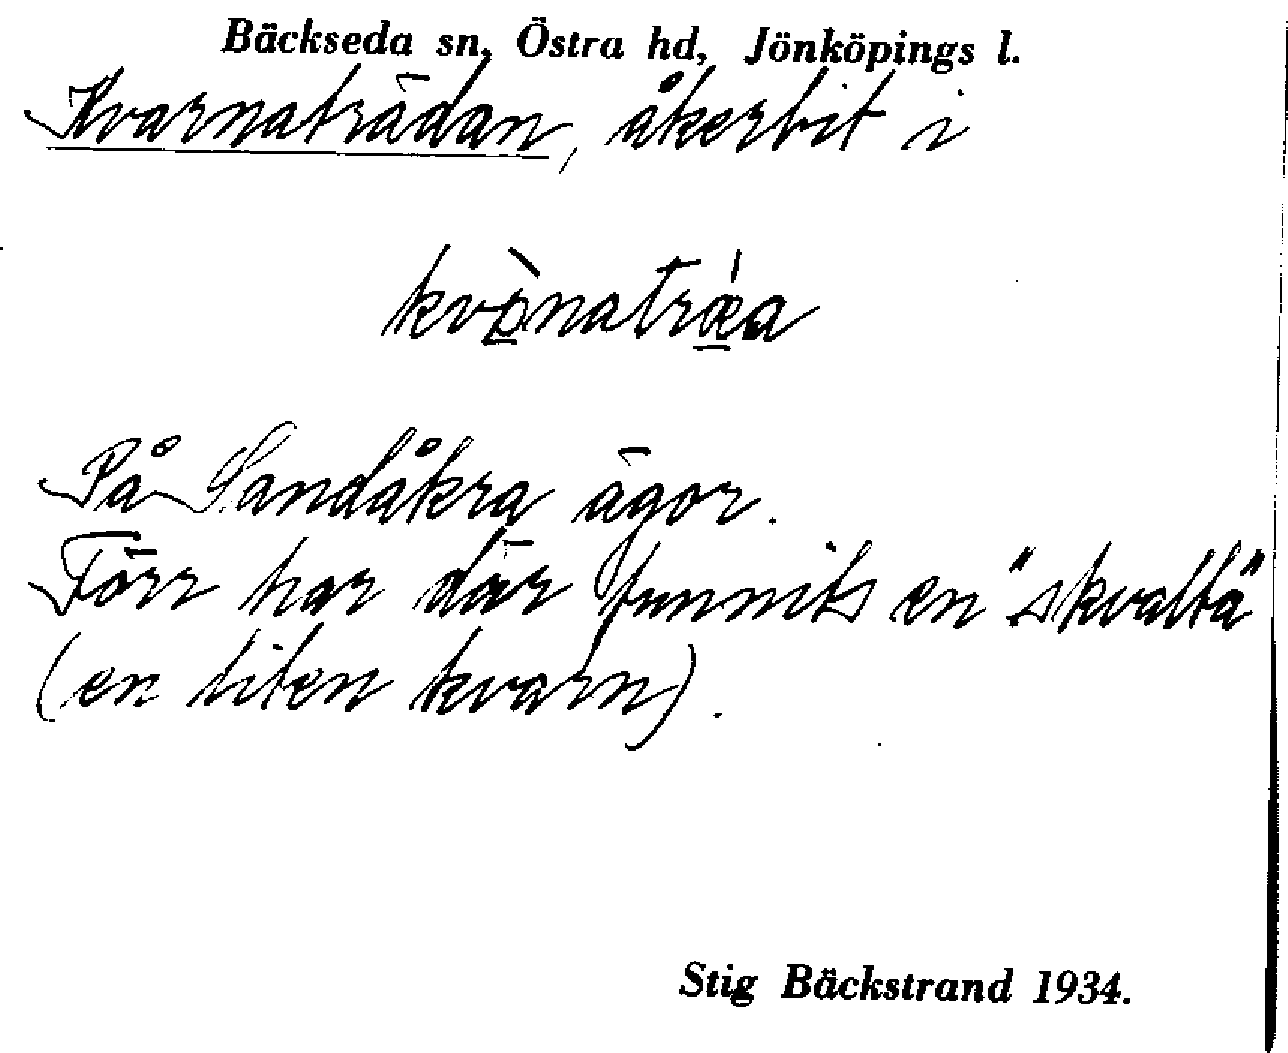 Bäckseda sn, Östra hd, Jönköpings l.
Kvarnaträdan, åkerbit i
kvò̱natrǽ̱a
På Sandåkra ägor.
Förr har där funnits en "skvaltä"
(en liten kvarn).
Stig Bäckstrand 1934.